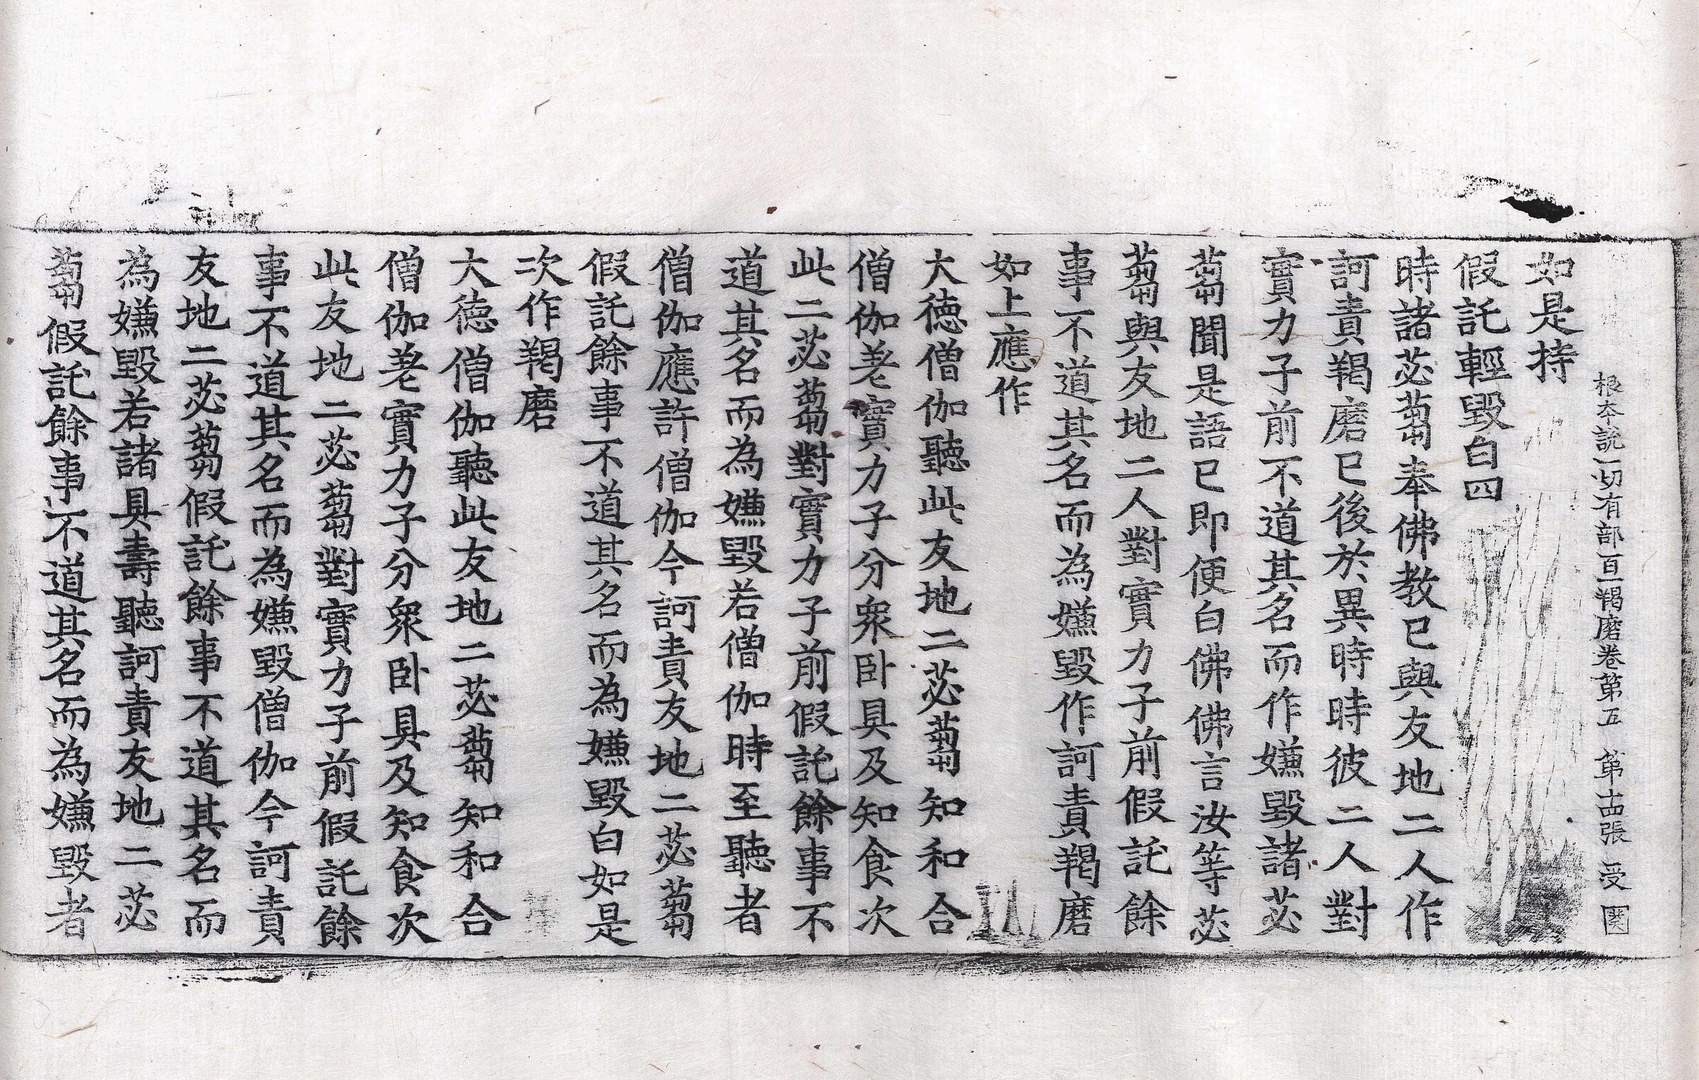 根本說一切有部百一羯磨卷第五　第十四張　受
如是持
假託輕毀白四
時諸苾蒭奉佛教已與友地二人作
訶責羯磨已後於異時時彼二人對
實力子前不道其名而作嫌毀諸苾
蒭聞是語已即便白佛佛言汝等苾
蒭與友地二人對實力子前假託餘
事不道其名而為嫌毀作訶責羯磨
如上應作
大德僧伽聽此友地二苾蒭知和合
僧伽差實力子分衆卧具及知食次
此二苾蒭對實力子前假託餘事不
道其名而為嫌毀若僧伽時至聽者
僧伽應許僧伽今訶責友地二苾蒭
假託餘事不道其名而為嫌毀白如是
次作羯磨
大德僧伽聽此友地二苾蒭知和合
僧伽差實力子分衆卧具及知食次
此友地二苾蒭對實力子前假託餘
事不道其名而為嫌毀僧伽今訶責
友地二苾蒭假託餘事不道其名而
為嫌毀若諸具壽聽訶責友地二苾
蒭假託餘事不道其名而為嫌毀者